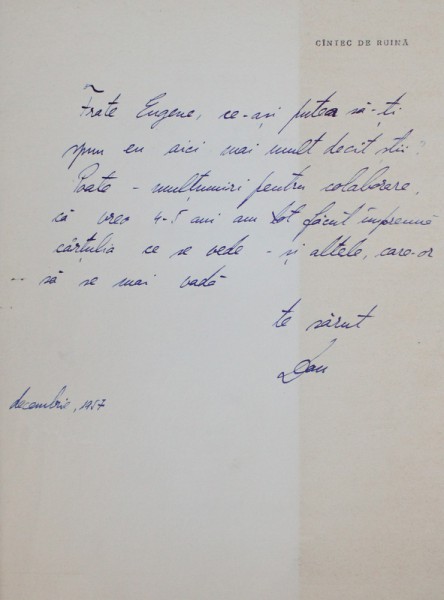 CÎNTEC DE RUINĂ
Frate Eugene, ce-aș putea să-ți
spun eu aici mai mult decît știi?
Poate - mulțumiri pentru colaborare,
că vreo 4-5 ani am tot făcut împreună
cărțulia ce se vede - și altele, care-or
să se mai vadă
te sărut
Dan
decembrie, 1957